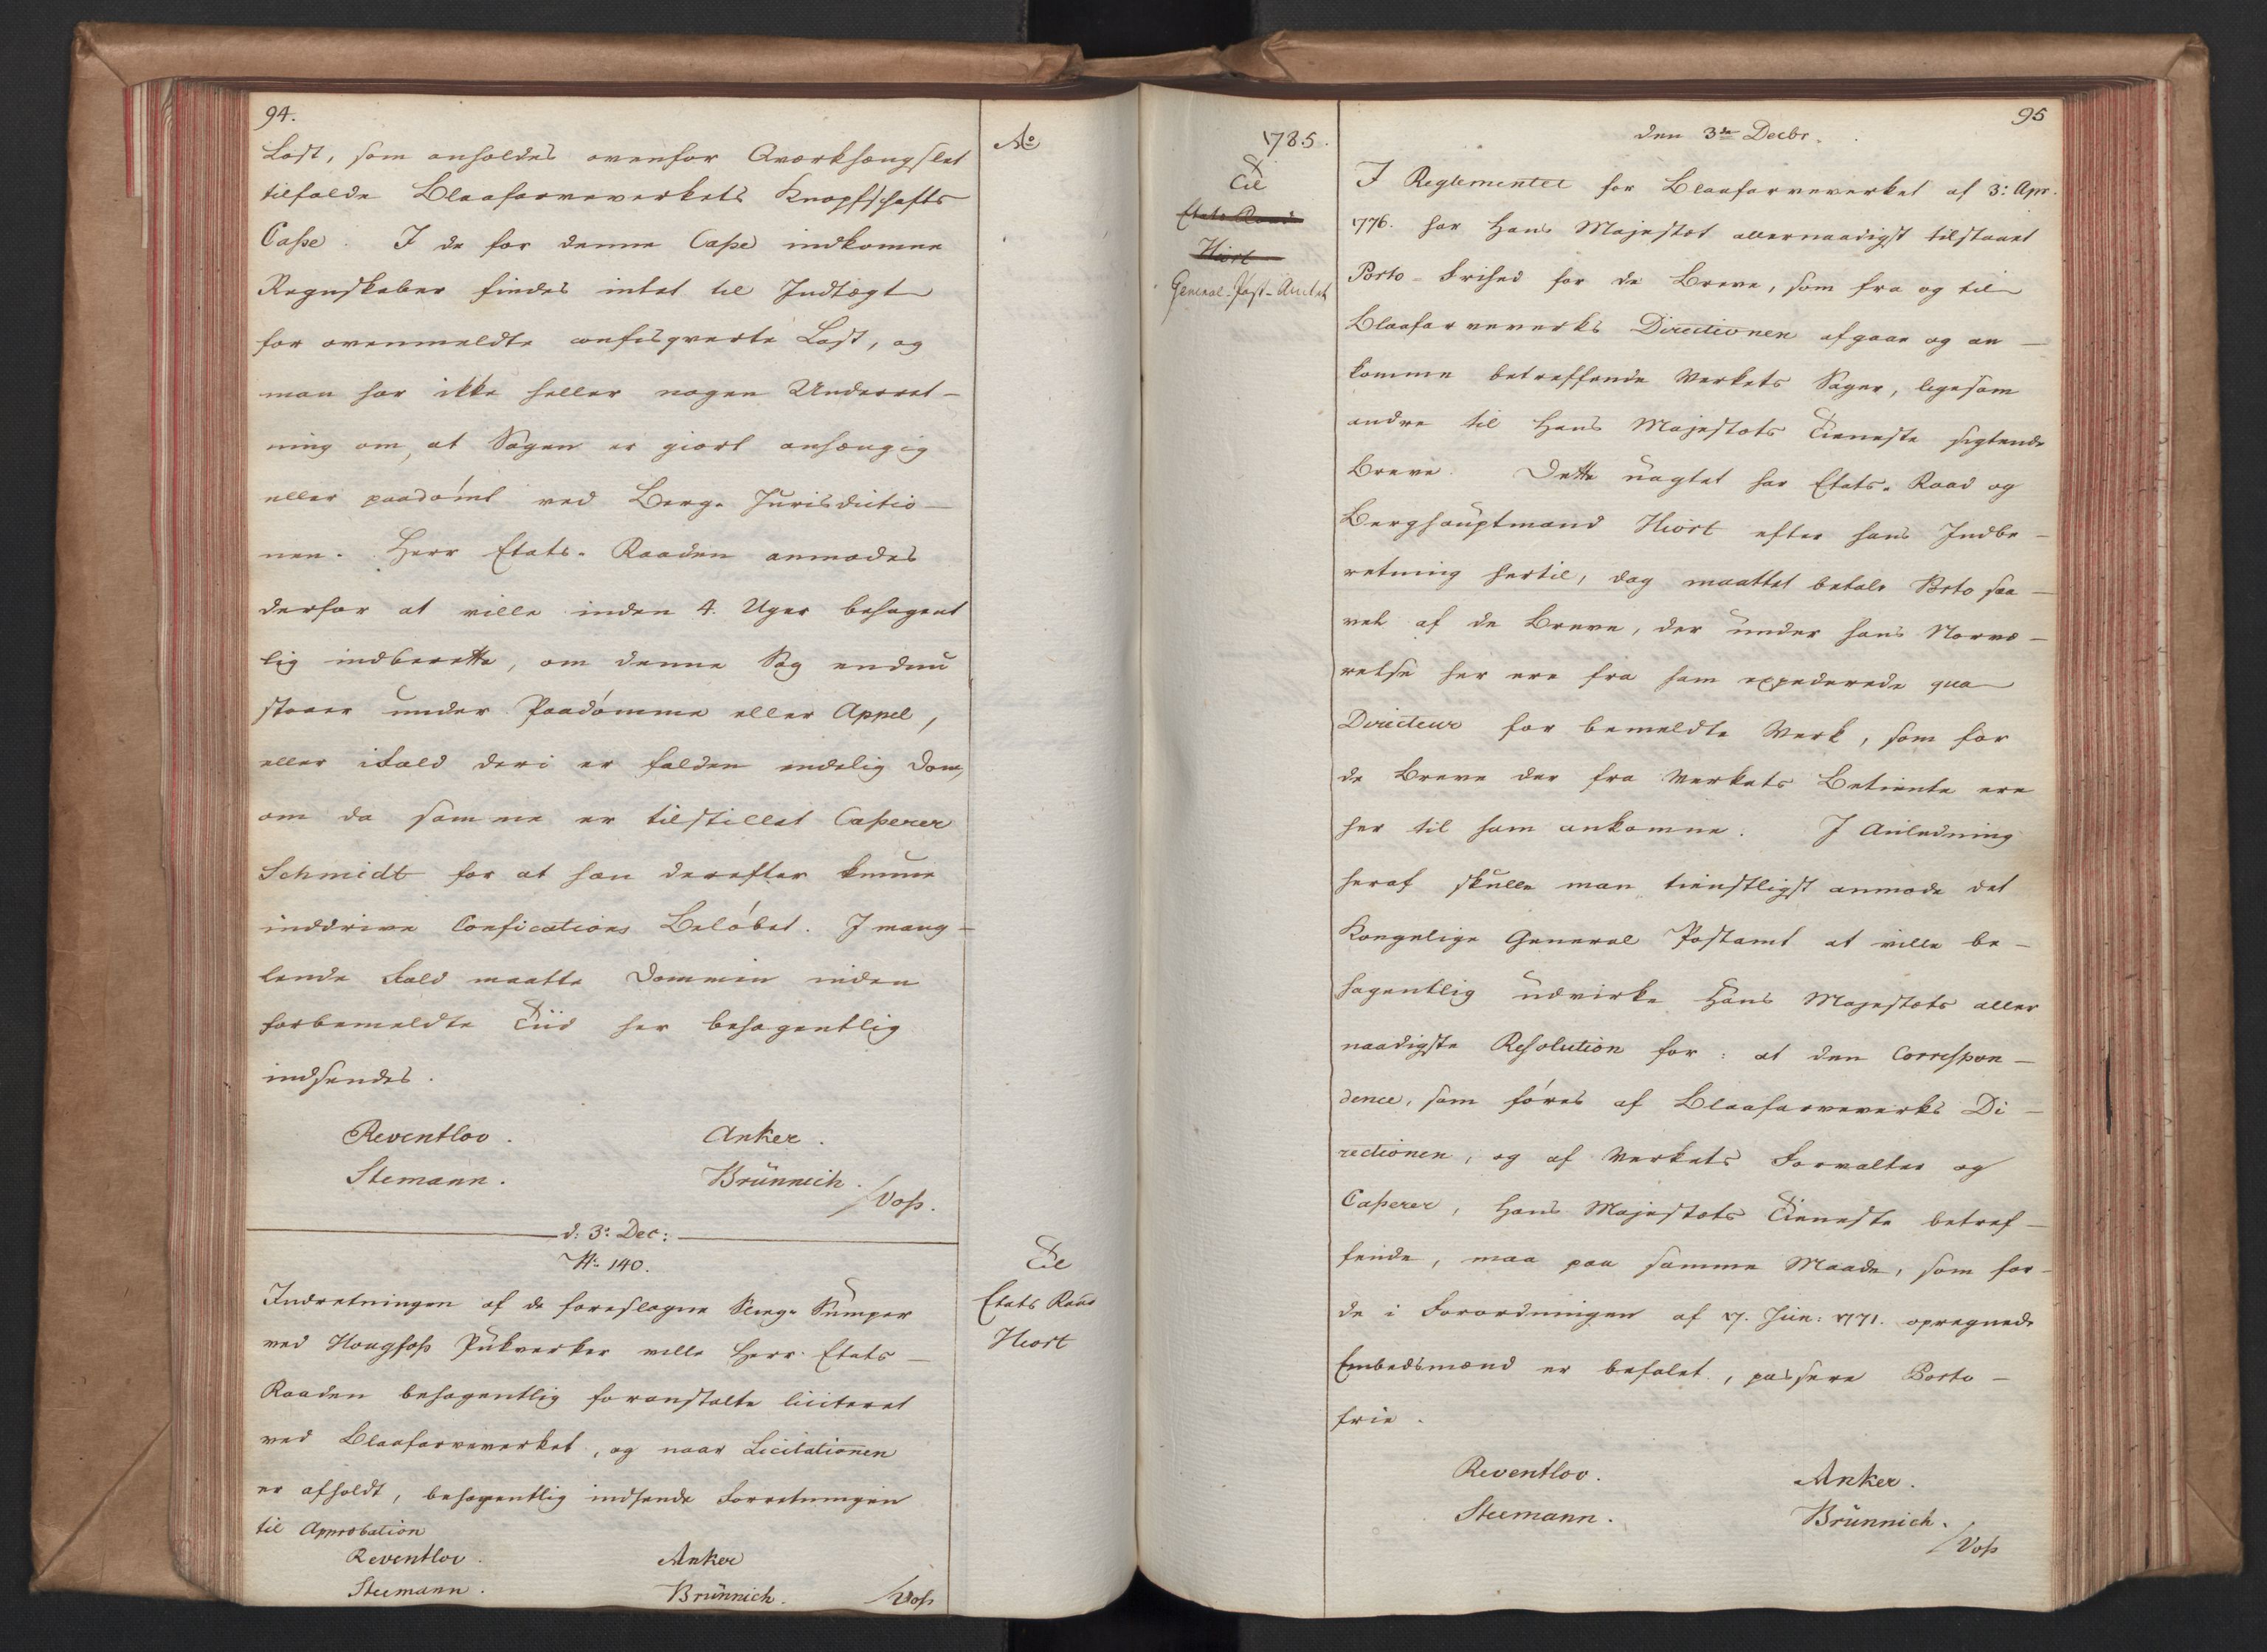 94.
Last, som anholdes ovenfor Qværkhængslet
tilfalde Blaafarveverkets Knapfschafts
Casse. I de for denne Casse indkomne
Regnskaber findes intet til Indtægt
for ovenmeldte confisqverte Last, og
man har ikke heller nogen Underret-
ning om, at Sagen er giort anhængig
eller paadömt ved Berg- Jurisdictio-
nen. Herr Etats- Raaden anmodes
derfor at ville inden 4. Uger behagent
lig indberette, om denne Sag endnu
staaer under Paadömme eller Appel,
eller ifald deri er falden endelig Dom,
om da samme er tilstillet Casserer
Schmidt for at han derefter kunne
inddrive Confications Belöbet. I mang-
lende Fald maatte Dommen inden
forbemeldte Tiid her behagentlig
indsendes.
Reventlov. Anker.
Stemann. Brünnich.
/Voss.
d: 3: Dec:
No 140.
Indretningen af de foreslagne Slieg- Sümper
ved Hougfoss Pukverker ville Herr Etats-
Raaden behagentlig foranstalte liciteret
ved Blaafarveverket, og naar Licitationen
er afholdt, behagentlig indsende Forretningen
til Approbation
Reventlov. Anker
Steemann. Brünnich. /Voss
Ao
Til
Etats Raad
Hiort
1785.
Til
Etats Raad
Hiort
General-Post-Amtet
95
den 3de Decbr.
I Reglementet for Blaafarveverket af 3: Apr.
1776. har Hans Majestæt allernaadigst tilstaaet
Porto-Frihed for de Breve, som fra og til
Blaafarveverks Directionen afgaae og an-
komme betreffende Verkets Sager, ligesom
andre til Hans Majestæts Tieneste sigtende
Breve. Dette uagtet har Etats- Raad og
Berghauptmand Hiort efter hans Indbe-
retning hertil, dog maattet betale Porto saa-
vel af de Breve, der under hans Nærvæ-
relse her ere fra ham expederede qua
Directeur for bemeldte Verk, som for
de Breve der fra Verkets Betiente ere
her til ham ankomne. I Anledning
heraf skulle man tienstligst anmode det
Kongelige General Postamt at ville be-
hagentlig udvirke Hans Majestæts aller
naadigste Resolution for: at den Correspon-
dence, som föres af Blaafarveverks Di-
rectionen, og af Verkets Forvalter og
Casserer, Hans Majestæts Tieneste betref-
fende, maa paa samme Maade, som for
de i Forordningen af 17. Jun: 1771. opregnede
Embedsmænd er befalet, passere Porto-
frie.
Reventlov. Anker.
Steemann. Brünnich.
/Voss